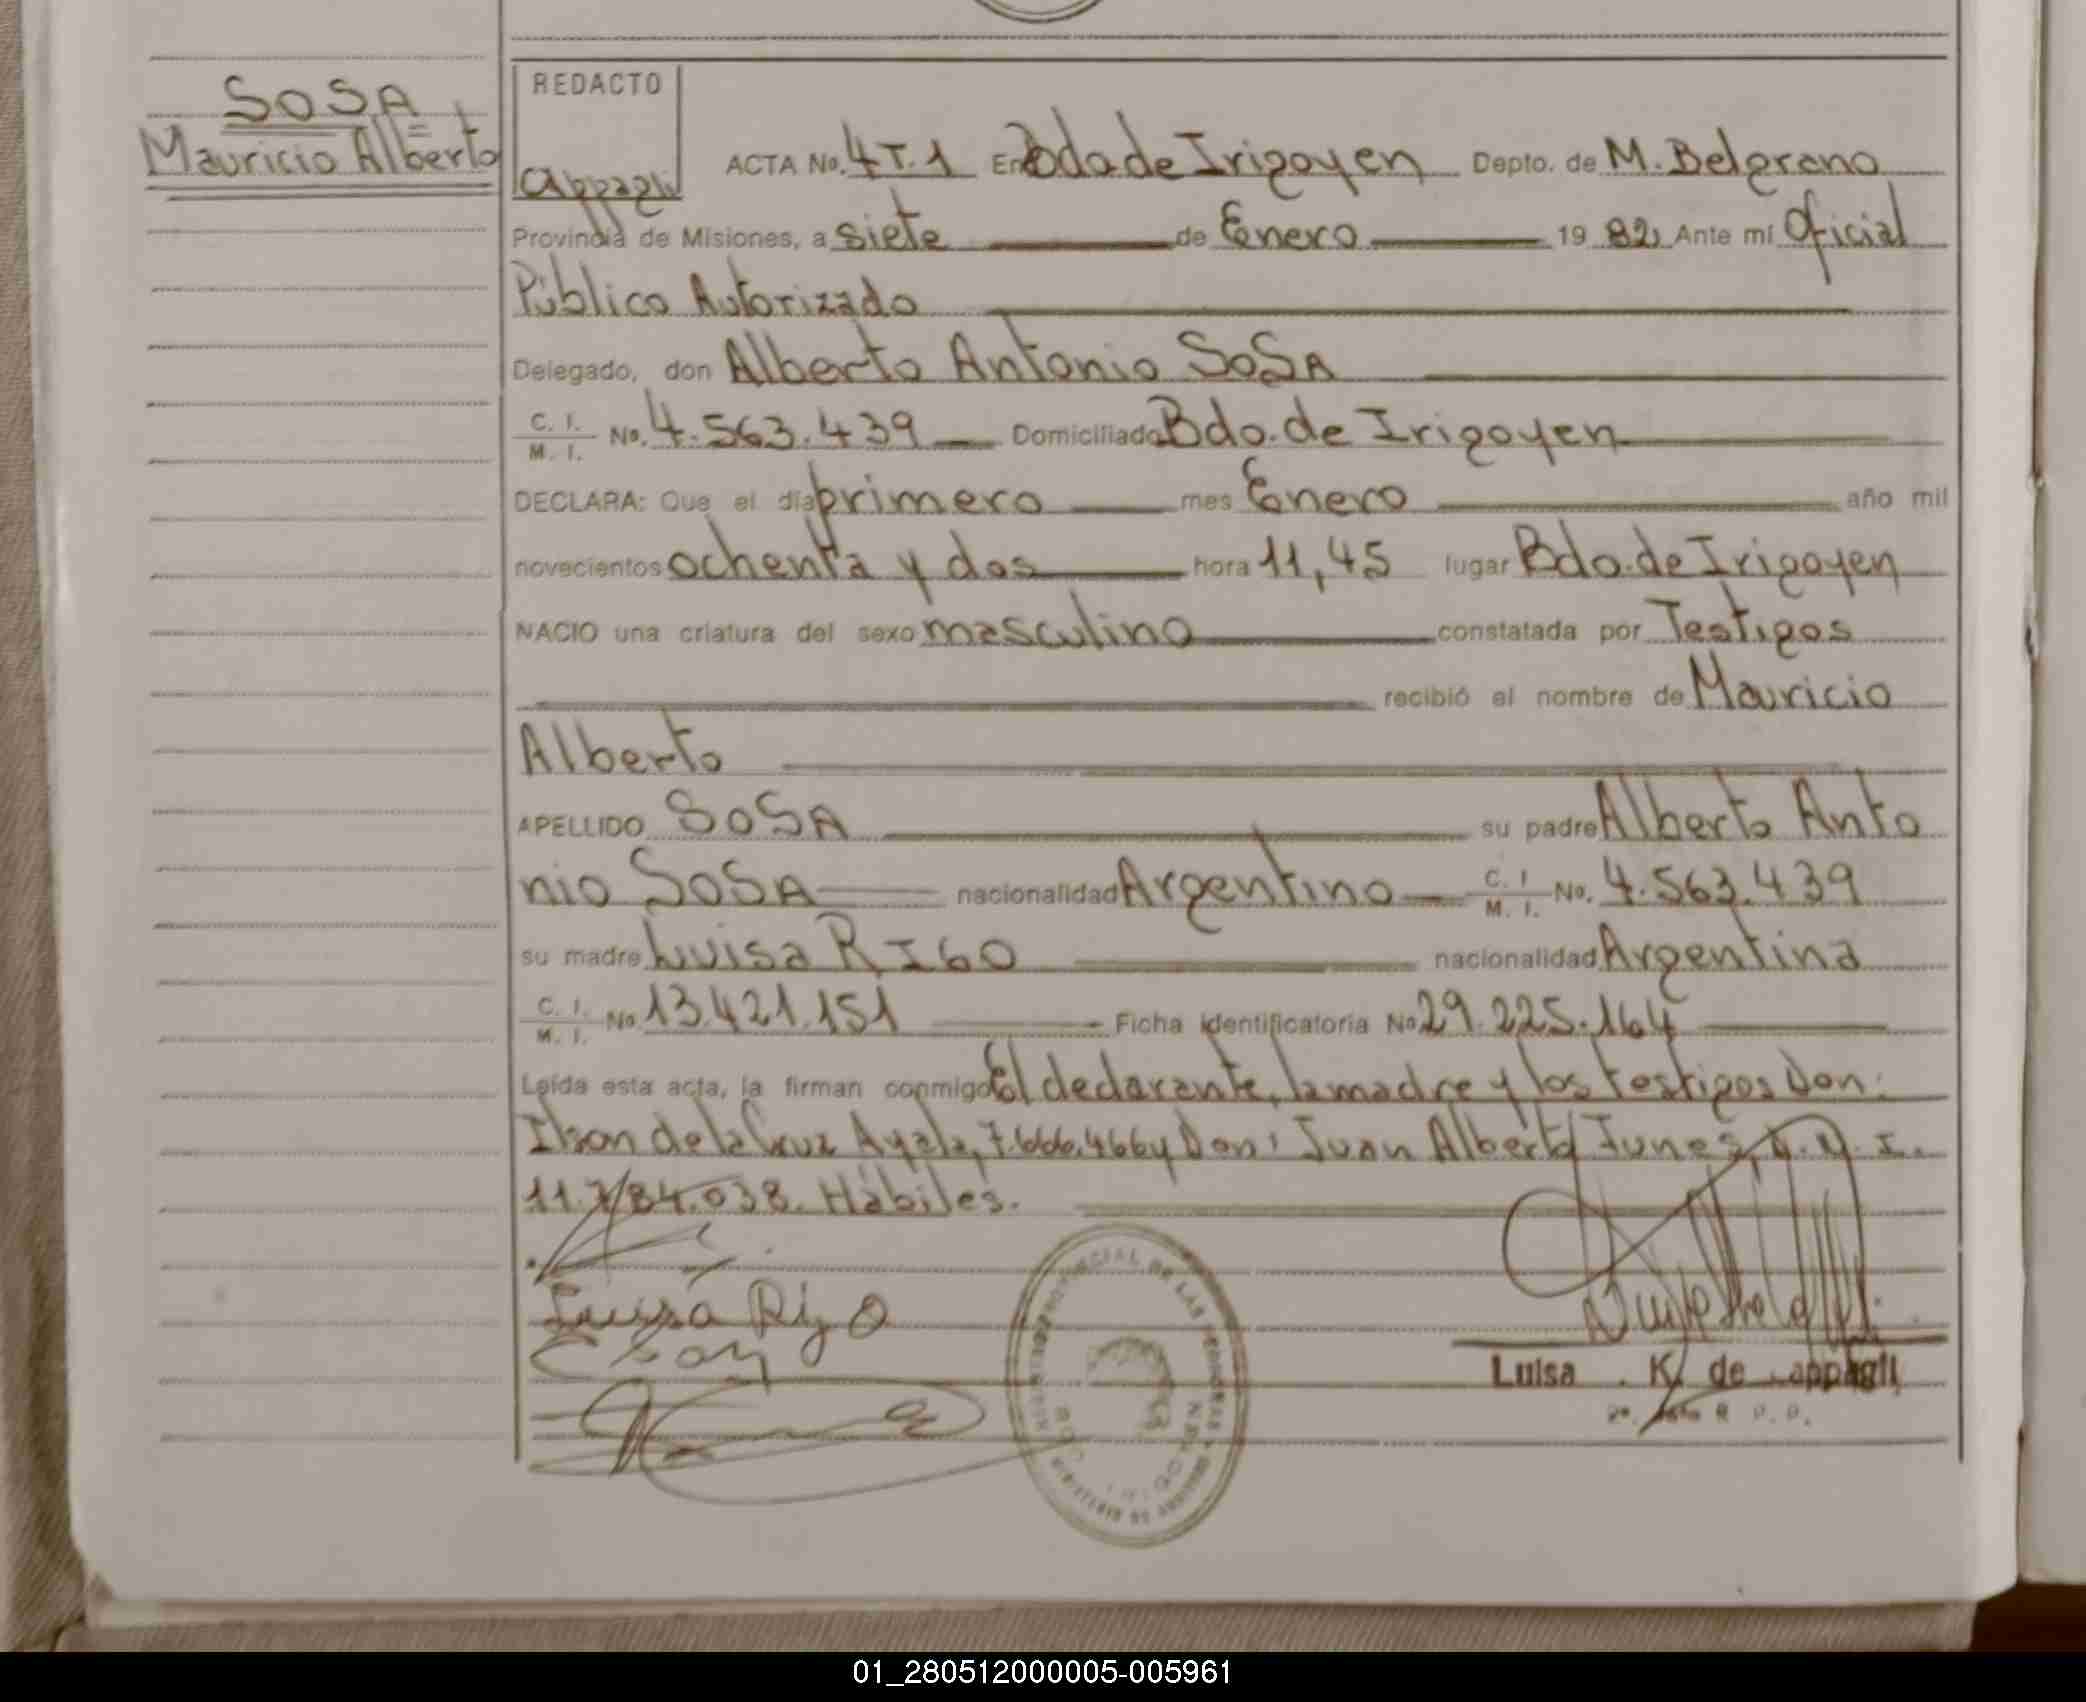 SOSA
Mauricio Alberto
REDACTO
Cappagli
ACTA No. 4 T.1 En Bdo de Irigoyen Depto. de M. Belgrano
Provincia de Misiones, a siete de Enero 19 82, Ante mí Oficial
Público Autorizado
Delegado, don Alberto Antonio SOSA
C. I. M. I. No. 4.563.439 Domiciliado Bdo. de Irigoyen
DECLARA: Que el día primero mes Enero año mil
novecientos ochenta y dos hora 11,45 lugar Bdo. de Irigoyen
NACIO una criatura del sexo masculino constatada por Testigos
recibió el nombre de Mauricio
Alberto
APELLIDO SOSA su padre Alberto Anto
nio SOSA nacionalidad Argentino C. I. M. I. No. 4.563.439
su madre Luisa RIGO nacionalidad Argentina
C. I. M. I. No. 13.421.151 Ficha identificatoria No. 29.225.164
Leída esta acta, la firman conmigo El declarante, la madre y los testigos Don:
de la Cruz Ayala, 7.666.466 y Don: Juan Alberto
11.784.038. Hábiles.
Luisa Rigo
Luisa K. de Cappagli
01_280512000005-005961